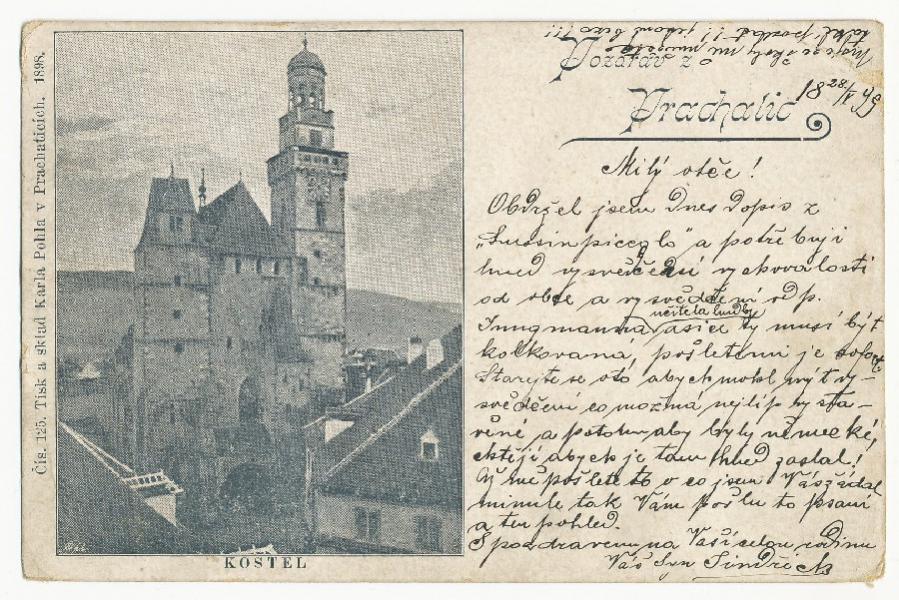 Čís. 125. Tisk a sklad Karla Pohla v Prachaticích. 1898.
KOSTEL
Pozdrav z
Prachatic
18 28/V 99
Milý otče!
Obdržel jsem Dnes Dopis z
„Lussinpiccolo“ a potřebuji
hned vysvědčení vychovalosti
od obce a vysvědčení od p.
učitele hudby
Jungmanna asice ty musí být
kolkovaná, pošletemi je
Starejte se oto abych mohl mýt vy-
svědčení co možná nejlíp vysta-
vené, a potom aby byly německé,
chtějí abych je tam hned zaslal!
Až mě pošlete to o co jsem Vás žádal
minule tak Vám pošlu to psaní
a ten pohled.
S pozdravem na Vaší celou rodinu
Váš Syn Jindřich